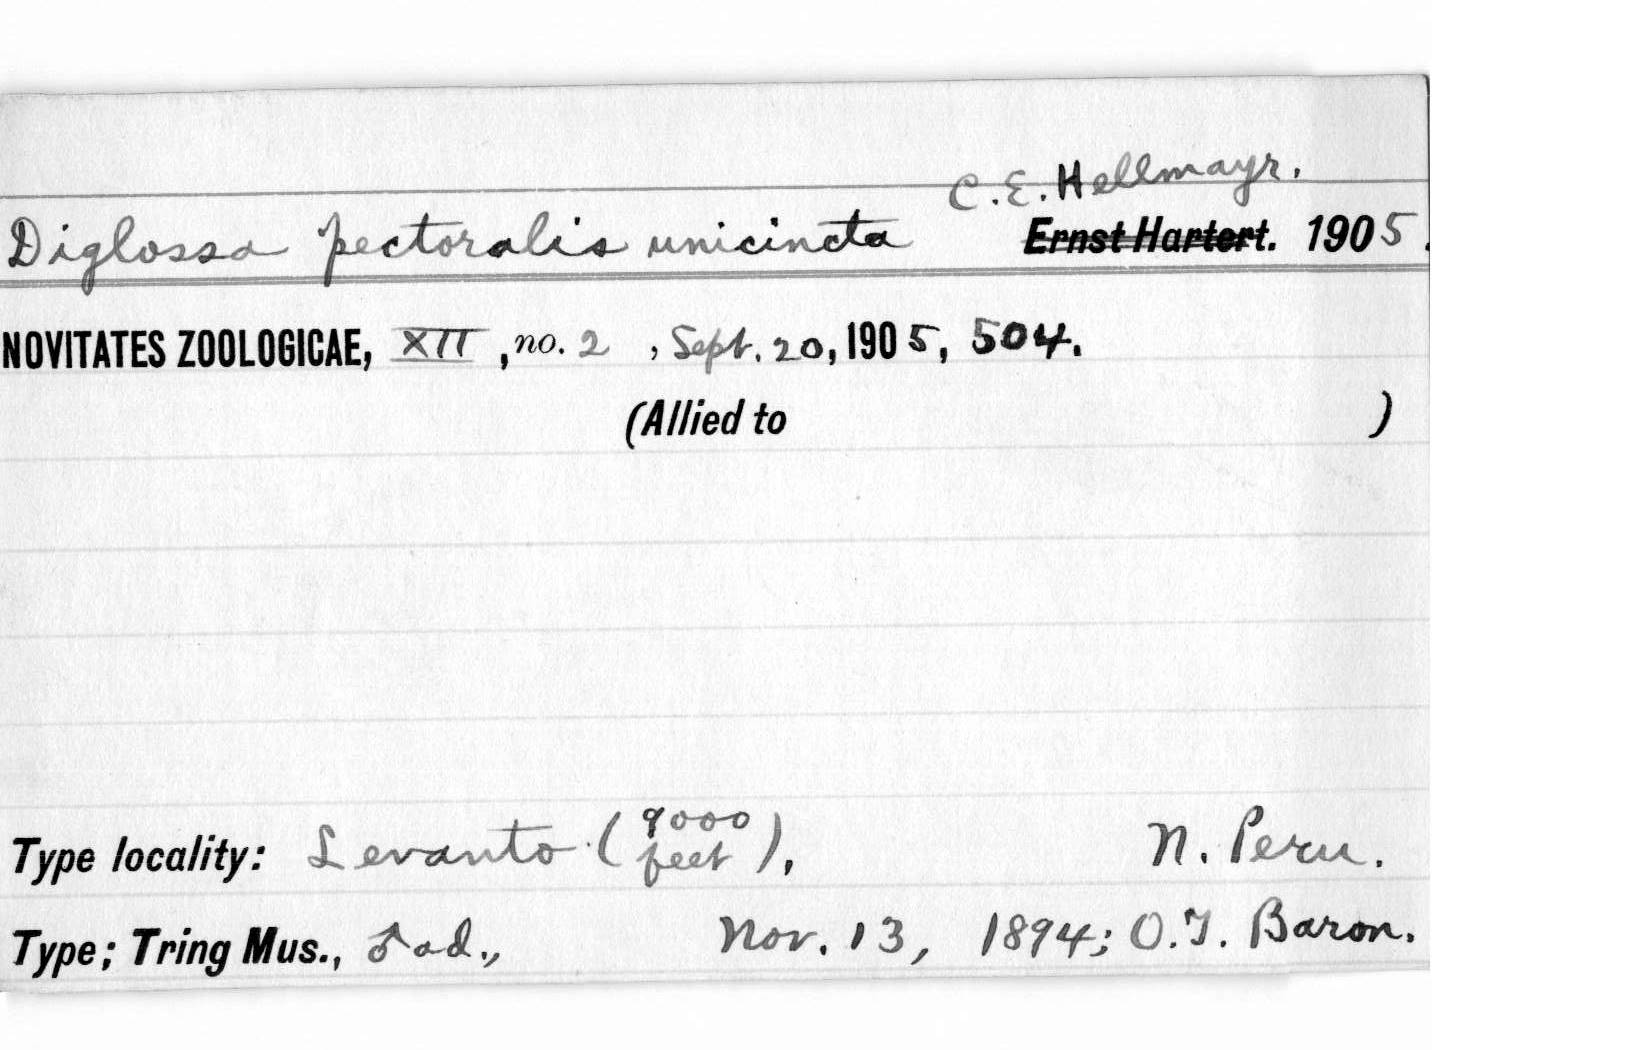 C. E. Hellmayr.
Diglossa pectoralis unicincta Ernst Hartert. 1905.
NOVITATES ZOOLOGICAE, XII, no. 2, Sept. 20, 1905, 504.
(Allied to )
Type locality: Levanto (9000 feet), N. Peru.
Type; Tring Mus., ♂ ad., Nov. 13, 1894; O. T. Baron.